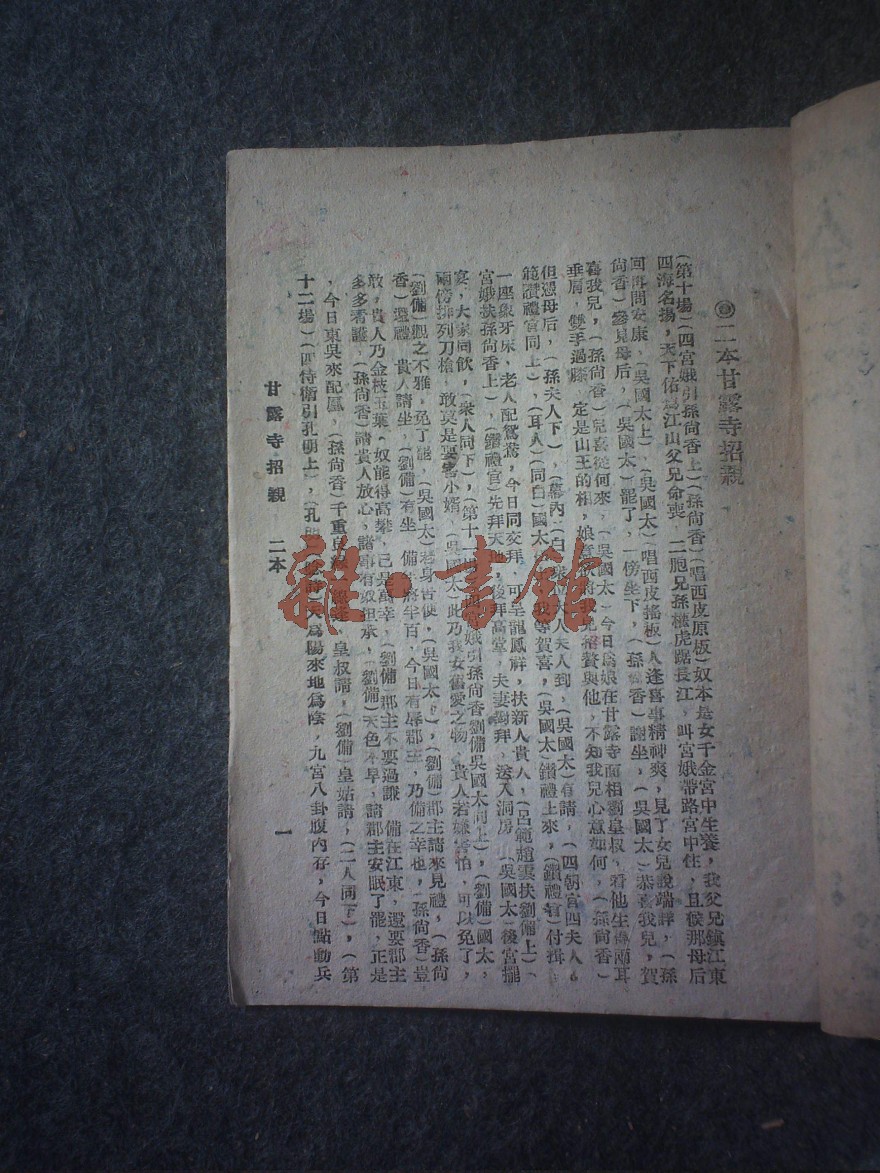 ◎二本甘露寺招親
(第十場)(四宮娥引孫尚香上)(孫尚香)(唱西皮原板)奴本是女千金宮中生養，我父兄鎮江東
四海名揚，天下佑 江山父兄命喪，二胞兄孫權虎踞長江，叫宮娥帶路宮中住，且候那母后
回再問安康，(吳國太上)，(吳國太)唱西皮搖板)人逢喜事精神爽，見了女兒說端詳，(孫
尚香)參見母后，(吳國太)罷了，一傍坐下，(孫尚香)謝坐，(吳國太)恭喜我兒，賀
喜我兒，(孫尚香)兒喜從何來，(吳國太)今日爲娘在甘露寺面相劉皇叔，看他生得兩耳
垂肩，雙手過膝 定是山王的相，娘意 將我兒招贅與他，不知我兒心意如何，(孫尚香)
但憑母后，(孫夫人下)，(幕內)(白) 夫人夫人到，(吳國太)有請，(四朝官四夫人
範讚禮官同上)，(耳人)(同白)國太 等賀喜，(吳國太)鑽禮上來，(鑽禮官)付擇
一座象牙床，老人配鴛鴦，今日同交拜，可呈龍鳳祥，扶新人貴人，(呂範趙雲扶劉備上)(
宮娥扶孫尚香上)，(鑽禮官)先拜天地，後拜高堂，夫妻對拜，送入洞房 (吳國太)後宮擺
宴，大家同飲，(衆人同下)，(第十一場)(四宮娥引孫尚香劉備吳國太同上)，(劉備)國太，
兩傍排列刀槍，敢莫是要害小婿，(吳國太)此乃我女舊愛之物，貴人若嫌害怕，可以免了，
(劉備)觀之不雅，免了罷，(吳國太)老身告便，(吳國太下)，(劉備)郡主請來見禮，(孫尚
香)還禮 貴人請坐，(劉備)有坐 備 將半百，今日有辱郡主，乃備之幸也，(孫尚香)豈
敢，貴人乃金枝玉葉，奴能得高攀，已是萬幸，(劉備)郡主不要過謙 備在江東，還要郡主
多多看護，(孫尚香)請貴人放心，諸事有奴担承，(劉備)天色不早，請郡主安眠了罷，正是
，今日東吳來配鳳，(孫尚香)千重 皇叔請，(劉備)皇姑請，(二人同下)，(第
十二場)(四侍衛引孔明上)，(孔明) 天爲陽來地爲陰，九宮八卦腹內存，今日點動兵
甘露寺招親　二本　一
雜·書館